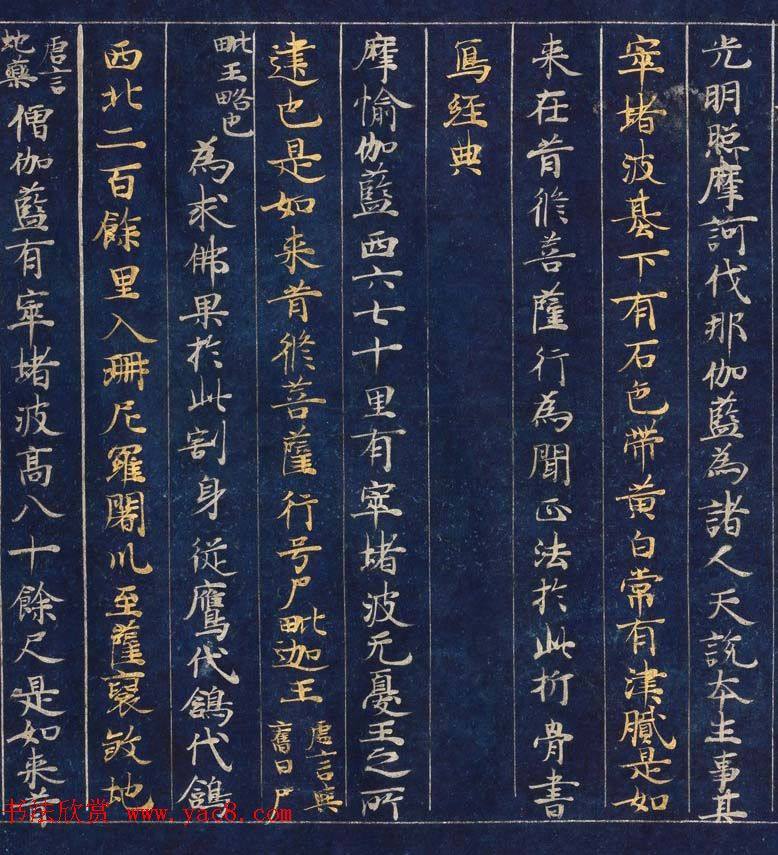 光明照摩訶伐那伽藍為諸人天說本生事其
窣堵波基下有石色帶黃白常有津膩是如
来在昔修菩薩行為聞正法於此析骨書
寫經典
摩愉伽藍西六七十里有窣堵波无憂王之所
建也是如来昔修菩薩行号尸毗迦王唐言與舊曰尸
毗王略也為求佛果於此割身從鷹代鴿代鴿
西北二百餘里入珊尼羅闍川至薩裒敆地
唐言蛇藥僧伽藍有窣堵波高八十餘尺是如来昔
书法欣赏 www.yac8.com